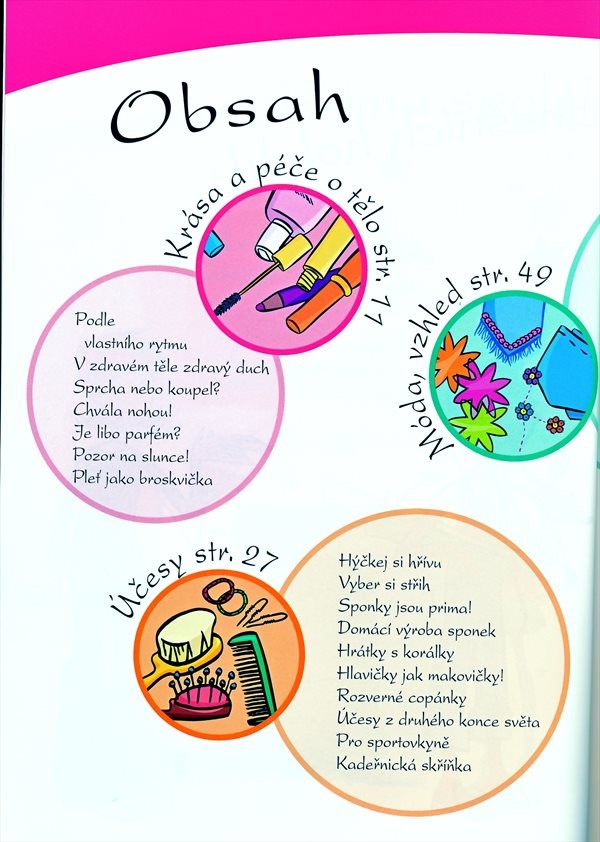 Obsah
Krása a péče o tělo str. 11
Podle
vlastního rytmu
V zdravém těle zdravý duch
Sprcha nebo koupel?
Chvála nohou!
Je libo parfém?
Pozor na slunce!
Pleť jako broskvička
Móda, vzhled str. 49
Účesy str. 27
Hýčkej si hřívu
Vyber si střih
Sponky jsou prima!
Domácí výroba sponek
Hrátky s korálky
Hlavičky jak makovičky!
Rozverné copánky
Účesy z druhého konce světa
Pro sportovkyně
Kadeřnická skříňka